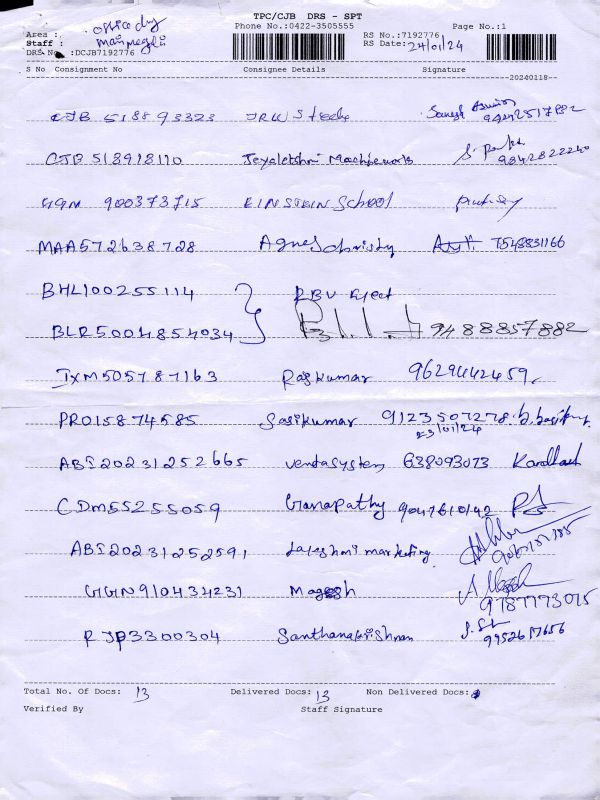 TPC/CJB DRS - SPT
Phone No.:0422-3505555 Page No.:1
Area :
Staff :
RS No.:7192776
DRS No :DCJB7192776 RS Date: 24/01/24
S No Consignment No Consignee Details Signature
20240118--
CJB 518893323 JRW Steels
CJB 513918110 Jeyaletchmi Machineworks 9842822240
900373715 EINSTEIN School
MAA572638728 Agnes christy 7548831166
BHL100255114 RBU Eject
BLR5004854034 9488857882
IXM505787163 Rajkumar 9629442459.
PRO15874585 Sasikumar 9123507278
23/01/24
ABI20231252665 ventasystem 638093073
CDM55255059 Ganapathy 9047610142
ABI20231252591 marketing
GGN910434231 Magesh
9787773015
RJP3300304 Santhanakrishnan
9952617656
Total No. Of Docs: 13 Delivered Docs: 13 Non Delivered Docs:
Verified By Staff Signature